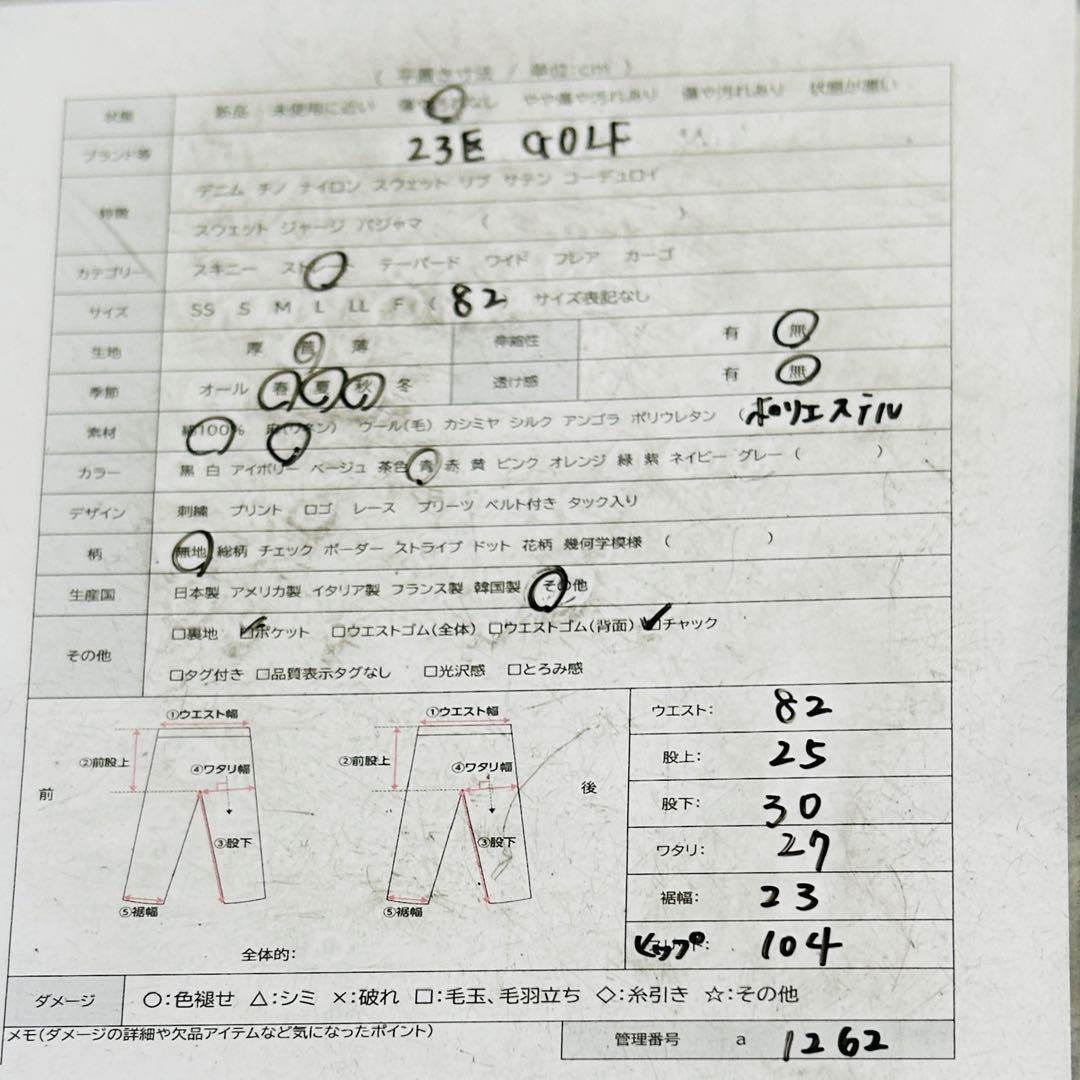 ( 平置き寸法 / 単位:cm )
状態 新品 未使用に近い 傷や汚れなし やや傷や汚れあり 傷や汚れあり 状態が悪い
ブランド等 23区 GOLF
特徴 デニム チノ ナイロン スウェット リブ サテン コーデュロイ
スウェット ジャージ パジャマ ( )
カテゴリー スキニー ストレート テーパード ワイド フレア カーゴ
サイズ SS S M L LL F ( 82 サイズ表記なし
生地 厚 普 薄 伸縮性 有 無
季節 オール 春 夏 秋 冬 透け感 有 無
素材 綿100% 麻(リネン) ウール(毛) カシミヤ シルク アンゴラ ポリウレタン ( ポリエステル
カラー 黒 白 アイボリー ベージュ 茶色 青 赤 黄 ピンク オレンジ 緑 紫 ネイビー グレー ( )
デザイン 刺繍 プリント ロゴ レース プリーツ ベルト付き タック入り
柄 無地 総柄 チェック ボーダー ストライプ ドット 花柄 幾何学模様 ( )
生産国 日本製 アメリカ製 イタリア製 フランス製 韓国製 その他
その他 □裏地 □ポケット □ウエストゴム(全体) □ウエストゴム(背面) □チャック
□タグ付き □品質表示タグなし □光沢感 □とろみ感
①ウエスト幅 ①ウエスト幅 ウエスト: 82
②前股上 ④ワタリ幅 ②前股上 ④ワタリ幅 股上: 25
前 後 股下: 30
③股下 ③股下 ワタリ: 27
⑤裾幅 ⑤裾幅 裾幅: 23
全体的: ヒップ: 104
ダメージ ○:色褪せ △:シミ ×:破れ □:毛玉、毛羽立ち ◇:糸引き ☆:その他
メモ(ダメージの詳細や欠品アイテムなど気になったポイント) 管理番号 a 1262